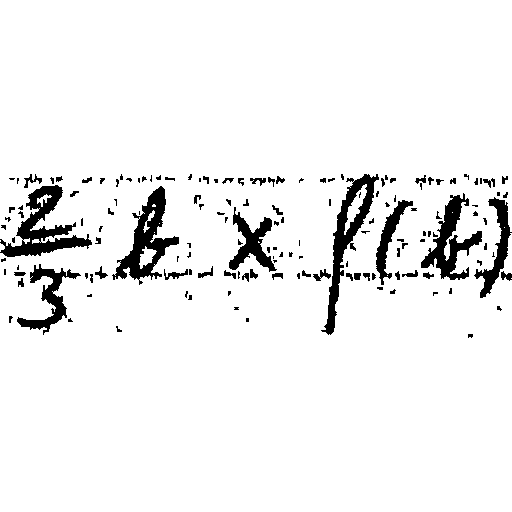 2/3 b x f(b)